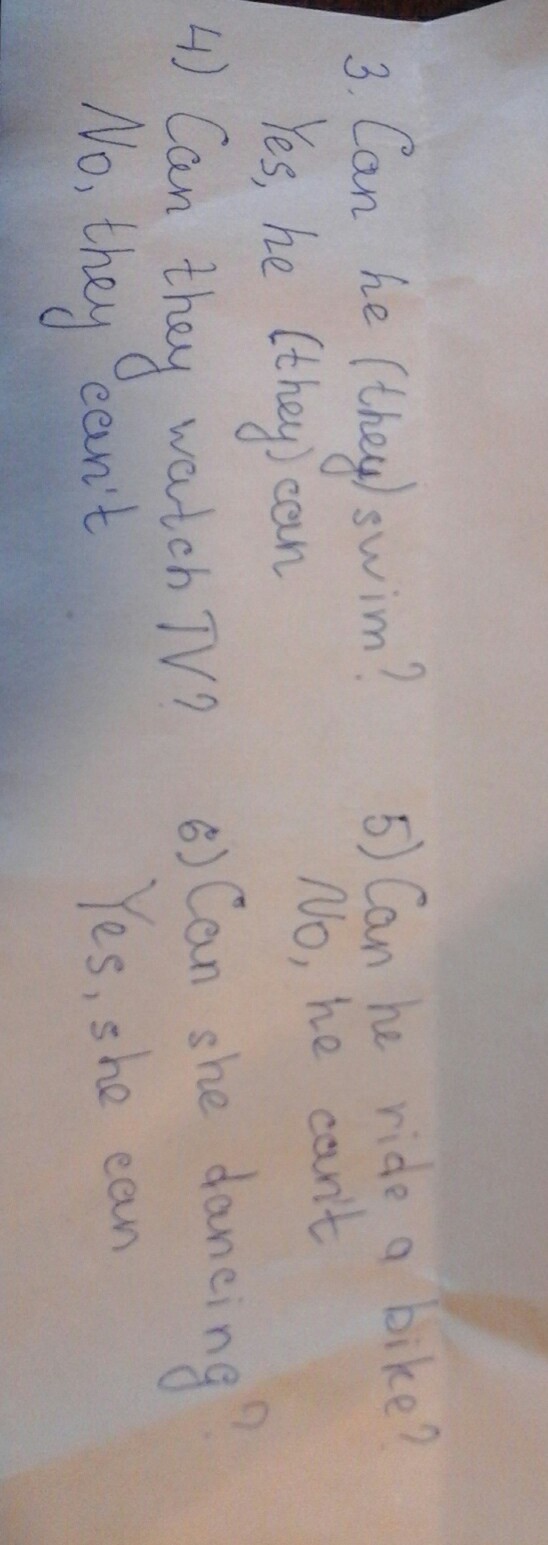 3. Can he (they) swim?
Yes, he (they) can
4) Can they watch TV?
No, they can't
5) Can he ride a bike?
No, he can't
6) Can she dancing?
Yes, she can